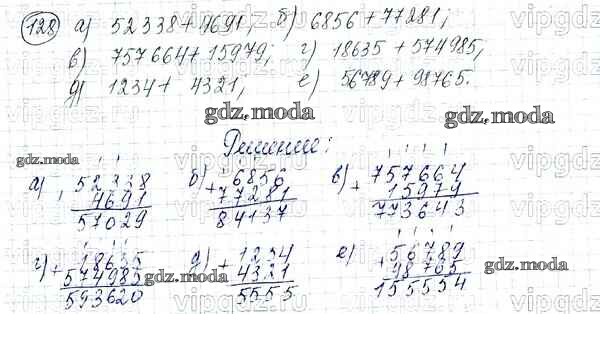 128 а) 52338+4691; б) 6856+77281;
в) 757664+15979; г) 18635+574985;
д) 1234+4321; е) 56789+98765.
gdz.moda gdz.moda
Решение:
gdz.moda
а) 52338 б) + 6856 в) + 757664
4691 77281 15979
57029 84137 773643
г) + 18635 д) + 1234 е) + 56789
574985 4321 98765
593620 5555 155554
gdz.moda gdz.moda gdz.moda